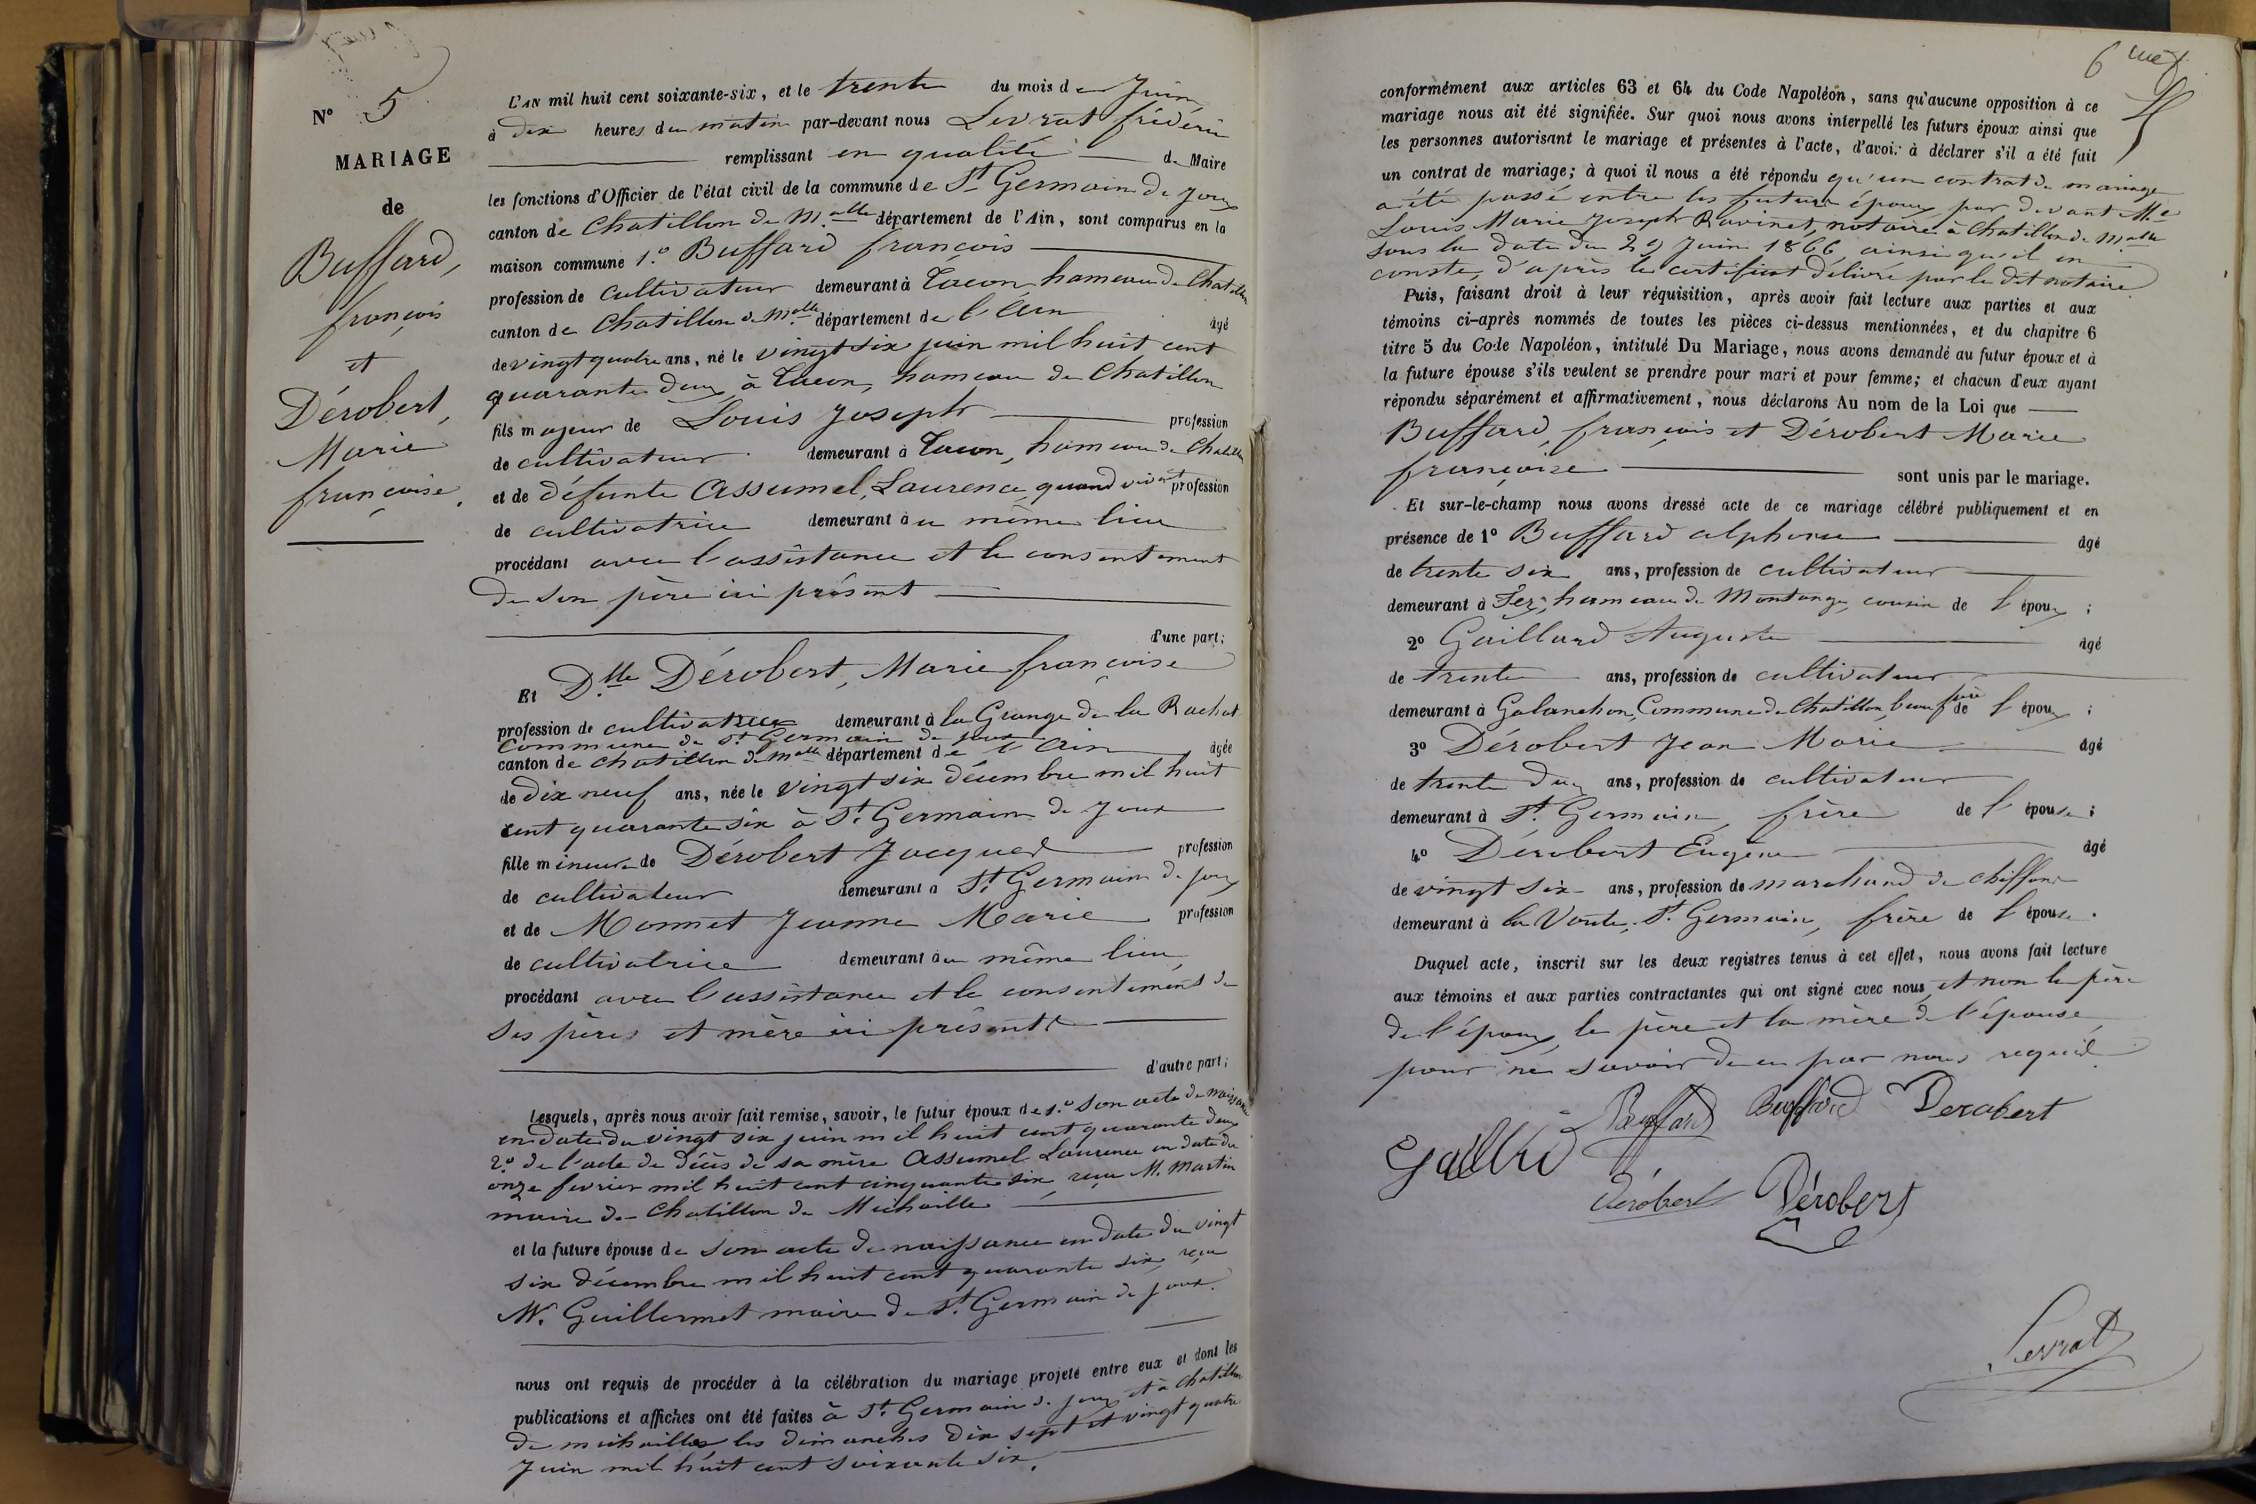 N° 5
MARIAGE
de
Buffard,
françois
et
Dérobert,
Marie
françoise.
L'AN mil huit cent soixante-six, et le trente du mois de Juin,
à dix heures du matin par-devant nous Levrat frédéric
remplissant en qualité de Maire
les fonctions d'Officier de l'état civil de la commune de St Germain de Joux
canton de Chatillon de Malle département de l'Ain, sont comparus en la
maison commune 1.° Buffard françois
profession de cultivateur demeurant à Tacon hameau de Chatillon
canton de Chatillon de Malle département de l'Ain âgé
de vingt quatre ans, né le vingt six juin mil huit cent
quarante deux à Tacon, hameau de Chatillon
fils majeur de Louis Joseph profession
de cultivateur demeurant à Tacon, hameau de Chatillon
et de défunte Assumel, Laurence, quand vivait profession
de cultivatrice demeurant au même lieu
procédant avec l'assistance et le consentement
de son père ici présent
d'une part;
Et Dlle Dérobert, Marie françoise
profession de cultivatrice demeurant à la Grange de la Rachat
commune de St Germain de Joux
canton de Chatillon de Malle département de l'Ain âgée
de dix neuf ans, née le vingt six décembre mil huit
cent quarante six à St Germain de Joux
fille mineure de Dérobert Jacques profession
de cultivateur demeurant à St Germain de Joux
et de Monnet Jeanne Marie profession
de cultivatrice demeurant au même lieu,
procédant avec l'assistance et le consentement de
ses pères et mère ici présents
d'autre part;
Lesquels, après nous avoir fait remise, savoir, le futur époux de 1.° son acte de naissance
en date du vingt six juin mil huit cent quarante deux
2.° de l'acte de décès de sa mère Assumel Laurence en date du
onze fevrier mil huit cent cinquante six, reçu M. Martin
maire de Chatillon de Michaille
et la future épouse de son acte de naissance en date du vingt
six décembre mil huit cent quarante six, reçu
M. Guillermet maire de St Germain de Joux.
nous ont requis de procéder à la célébration du mariage projeté entre eux et dont les
publications et affiches ont été faites à St Germain de Joux et à Chatillon
de michailles les dimanches dix sept et vingt quatre
Juin mil huit cent soixante six.
conformément aux articles 63 et 64 du Code Napoléon, sans qu'aucune opposition à ce
mariage nous ait été signifiée. Sur quoi nous avons interpellé les futurs époux ainsi que
les personnes autorisant le mariage et présentes à l'acte, d'avoir à déclarer s'il a été fait
un contrat de mariage; à quoi il nous a été répondu qu'un contrat de mariage
a été passé entre les futurs époux par devant Me
Louis Marie Joseph Ravinet, notaire à Chatillon de Malle
sous la date du 29 Juin 1866, ainsi qu'il en
conste, d'après le certificat délivré par le dit notaire.
Puis, faisant droit à leur réquisition, après avoir fait lecture aux parties et aux
témoins ci-après nommés de toutes les pièces ci-dessus mentionnées, et du chapitre 6
titre 5 du Code Napoléon, intitulé Du Mariage, nous avons demandé au futur époux et à
la future épouse s'ils veulent se prendre pour mari et pour femme; et chacun d'eux ayant
répondu séparément et affirmativement, nous déclarons Au nom de la Loi que
Buffard, françois et Dérobert Marie
françoise sont unis par le mariage.
Et sur-le-champ nous avons dressé acte de ce mariage célébré publiquement et en
présence de 1° Buffard alphonse âgé
de trente six ans, profession de cultivateur
demeurant à hameau de Montange, cousin de l'époux;
2° Gaillard Auguste âgé
de trente ans, profession de cultivateur
demeurant à Galanchon, Commune de Chatillon, beau frère de l'époux;
3° Dérobert Jean Marie âgé
de trente deux ans, profession de cultivateur
demeurant à St Germain, frère de l'épouse;
4° Dérobert Eugène âgé
de vingt six ans, profession de marchand de chiffons
demeurant à la Voute, St Germain, frère de l'épouse.
Duquel acte, inscrit sur les deux registres tenus à cet effet, nous avons fait lecture
aux témoins et aux parties contractantes qui ont signé avec nous, et non le père
de l'époux, le père et la mère de l'épouse
pour ne savoir de ce par nous requis.
Buffard Buffard Dérobert
Gaillard
Dérobert Dérobert
Levrat